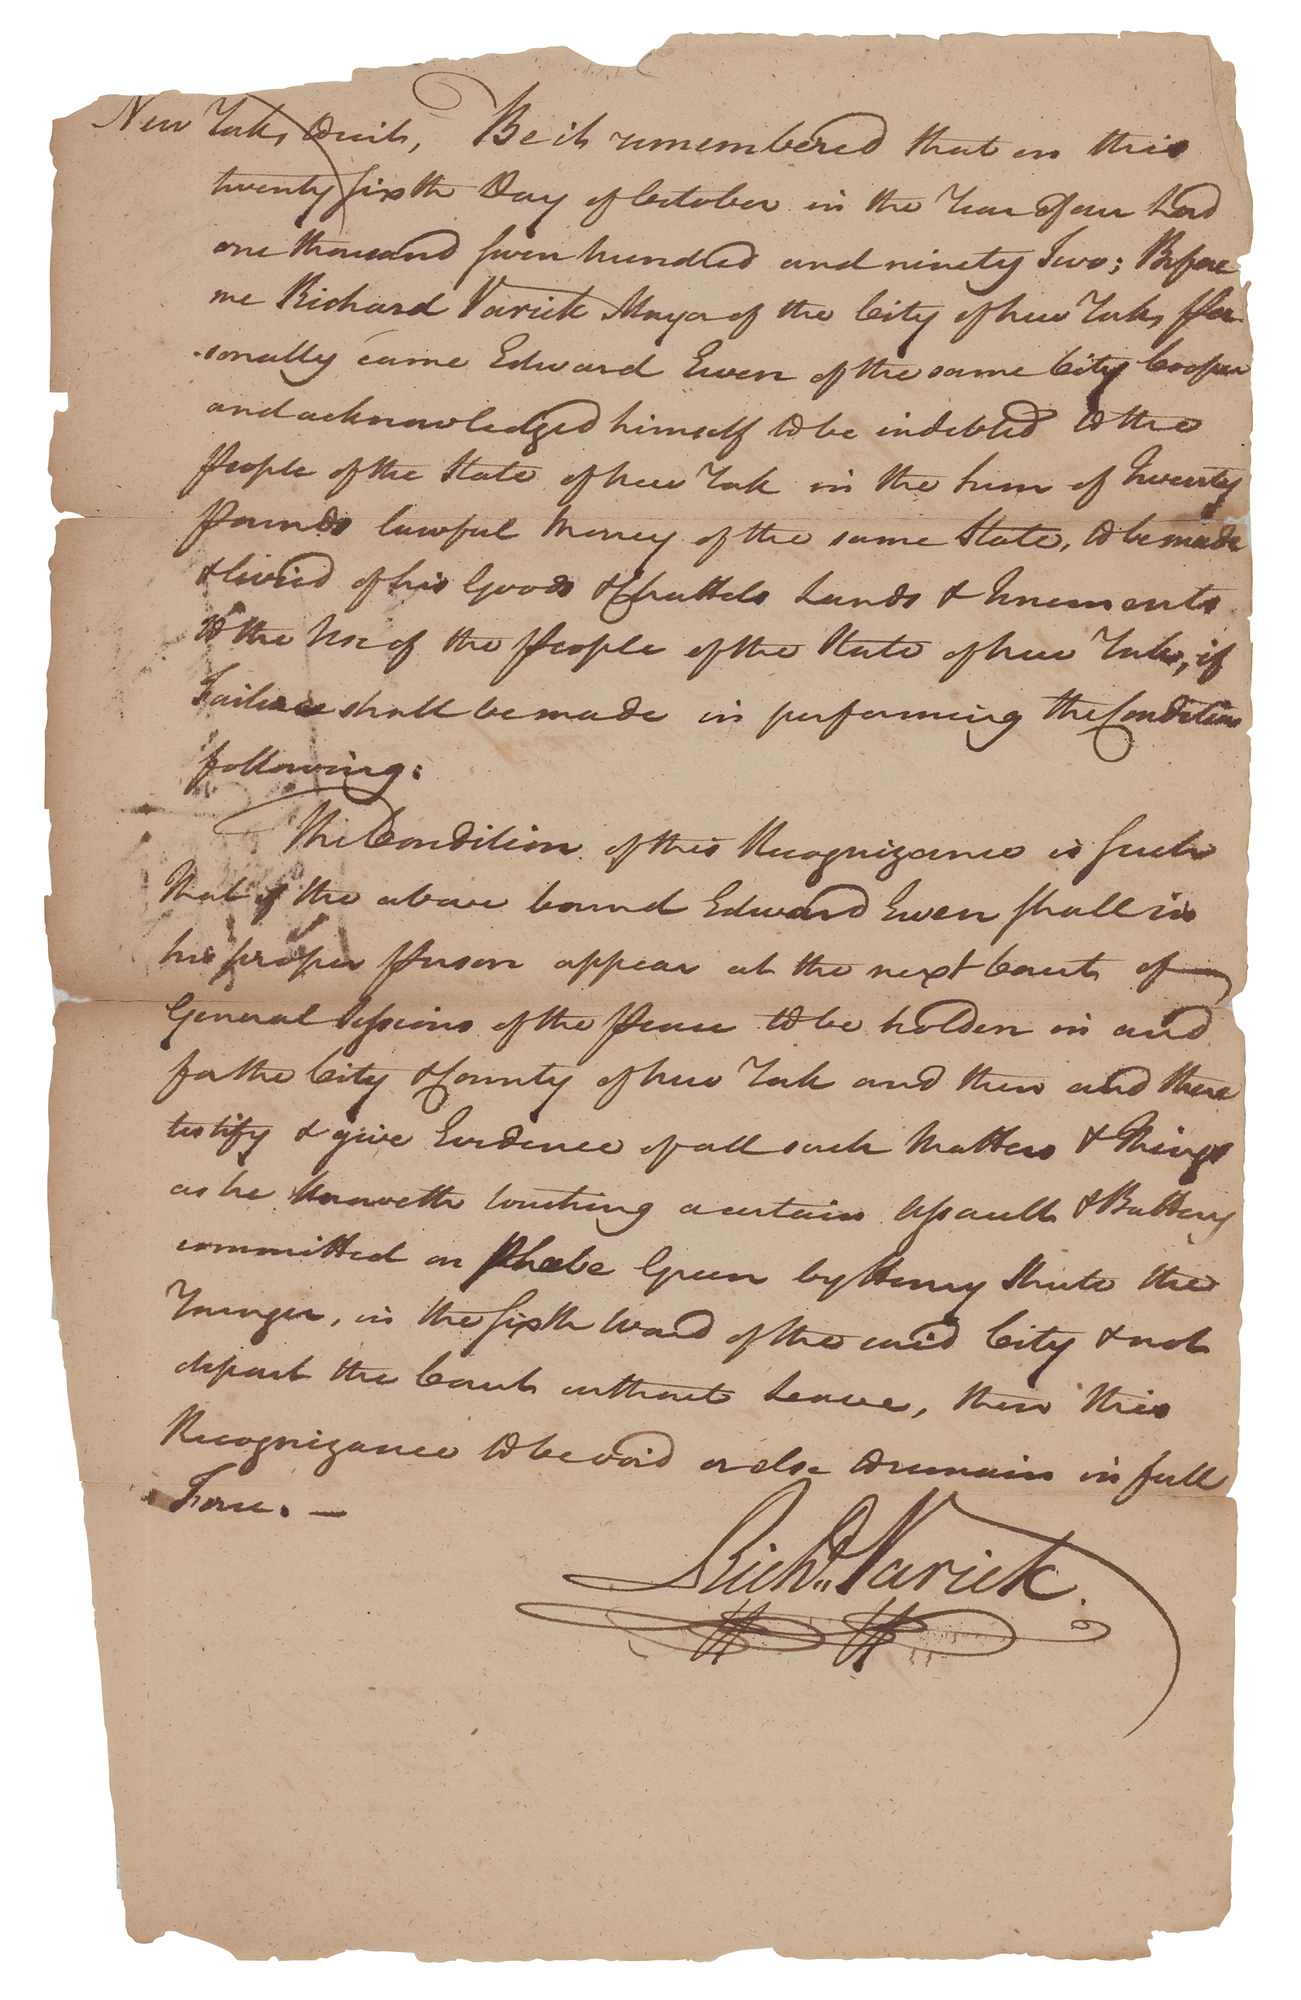 New York, to wit, Be it remembered that on this
twenty sixth Day of October in the Year of our Lord
one thousand seven hundred and ninety Two; Before
me Richard Varick Mayor of the City of New York, Per-
sonally came Edward Ewen of the same City Cooper
and acknowledged himself to be indebted to the
People of the State of New York in the Sum of Twenty
Pounds lawful Money of the same State, to be made
& levied of his Goods & Chattels Lands & Tenements
to the Use of the People of the State of New York, if
Failure shall be made in performing the Condition
following:
The Condition of this Recognizance is Such
That if the above bound Edward Ewen shall in
his proper Person appear at the next Court of
General Sessions of the Peace to be holden in and
for the City & County of New York and then and there
testify & give Evidence of all such Matters & Things
as he Knoweth touching a certain Assault & Battery
committed on Phebe Green by Henry Shute the
Younger, in the Sixth Ward of the said City & not
depart the Court without Leave, then this
Recognizance to be void or else to remain in full
Force. —
Richd. Varick.